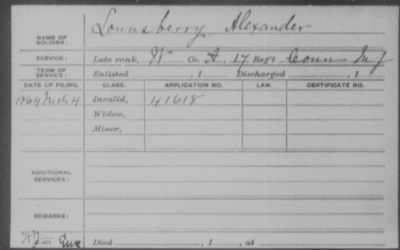 NAME OF SOLDIER: Lounsberry, Alexander
SERVICE: Late rank, Co. A, 17 Reg't Conn Inf
TERM OF SERVICE: Enlisted , 1 Discharged , 1
DATE OF FILING. CLASS. APPLICATION NO. LAW. CERTIFICATE NO.
1864 Mch 4 Invalid, 41618
Widow,
Minor,
ADDITIONAL SERVICES:
REMARKS:
Died , 1 , at